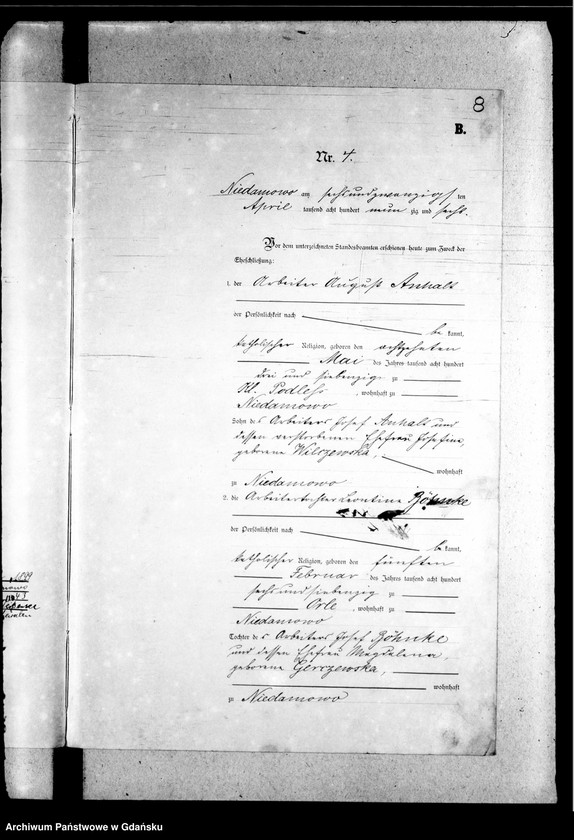 8
B.
Nr. 4.
Niedamowo am sechsundzwanzigs ten
April tausend acht hundert neun zig und sechs.
Vor dem unterzeichneten Standesbeamten erschienen heute zum Zweck der
Eheschließung:
1. der Arbeiter August Anhalt
der Persönlichkeit nach
be kannt,
katholischer Religion, geboren den achtzehnten
Mai des Jahres tausend acht hundert
drei und siebenzig zu
Kl. Podless, wohnhaft zu
Niedamowo
Sohn des Arbeiters Josef Anhalt und
dessen verstorbenen Ehefrau Josefine,
geborene Wilczewska, wohnhaft
zu Niedamowo
2. die Arbeitertochter Leontine Böhnke
der Persönlichkeit nach
be kannt,
katholischer Religion, geboren den fünften
Februar des Jahres tausend acht hundert
sechsundsiebenzig zu
Orle, wohnhaft zu
Niedamowo
Tochter des Arbeiters Josef Böhnke
und dessen Ehefrau Magdalena,
geborene Gerczewska,
wohnhaft
zu Niedamowo
Archiwum Państwowe w Gdańsku